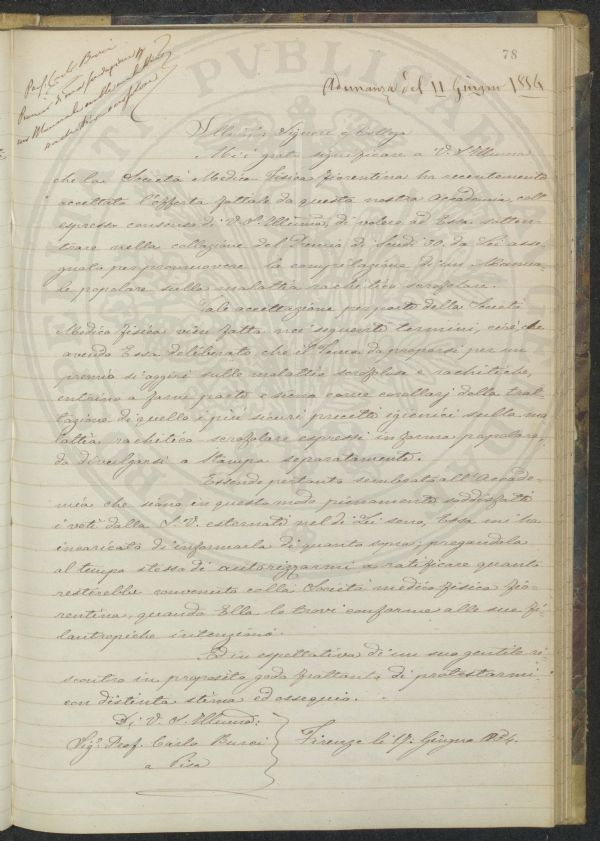 78
Prof. Carlo Burci
Adunanza del 11 Giugno 1884
Illmo. Signore e Collega
Mi è grato significare a V. S. Illuma.
che la Società Medico Fisica Fiorentina ha recentemente
accettata l'offerta fattale da questa nostra Accademia, coll'
espresso consenso di V. S. Illuma, di volere ad Essa sotten-
trare nella collazione del Premio di Scudi 30, da Lei asse-
gnato per promuovere la compilazione di un Manua-
le popolare sulla malattia rachitico scrofolare.
Tale accettazione per parte della Società
Medico fisica vien fatta nei seguenti termini, cioè che
avendo Essa deliberato che il Tema da proporsi per un
premio si aggiri sulle malattie scrofolose e rachitiche,
entrino a farne parte e siano come corollarj della trat-
tazione di quelle i più sicuri precetti igienici sulla ma-
lattia rachitico scrofolare espressi in forma popolare,
da divulgarsi a stampa separatamente.
Essendo pertanto sembrato all'Accade-
mia che siano in questo modo pienamente soddisfatti
i voti dalla S. V. esternati nel di Lei seno, Essa mi ha
incaricato di informarla di quanto sopra, pregandola
al tempo stesso di autorizzarmi a ratificare quanto
resterebbe convenuto colla Società medico fisica Fio-
rentina, quando Ella lo trovi conforme alle sue fi-
lantropiche intenzioni.
Ed in espettativa di un suo gentile ri-
scontro in proposito godo frattanto di protestarmi
con distinta stima ed ossequio.
Di V. S. Illuma.
Sigr. Prof. Carlo Burci
a Pisa
Firenze li 17 Giugno